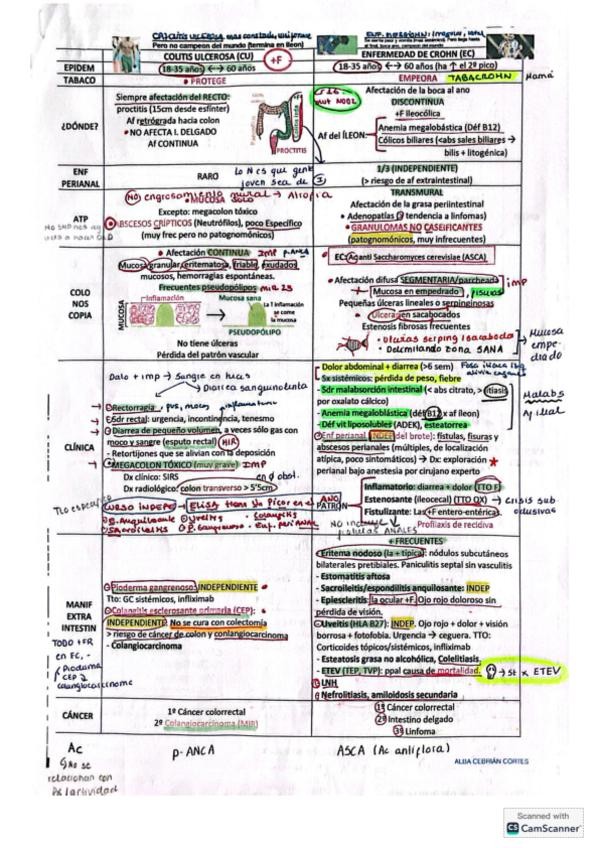 COLITIS ULCEROSA, mas constante, uniforme
Pero no campeon del mundo (termina en Ileon)
COLITIS ULCEROSA (CU)
+F
ENFERMEDAD DE CROHN (EC)
EPIDEM
18-35 años ←→ 60 años
18-35 años ←→ 60 años (ha ↑ el 2º pico)
TABACO
PROTEGE
EMPEORA TABACROHN
Mamá
¿DÓNDE?
Siempre afectación del RECTO:
proctitis (15cm desde esfínter)
Af retrógrada hacia colon
NO AFECTA I. DELGADO
Af CONTINUA
PROCTITIS
mut NOD2
Afectación de la boca al ano
DISCONTINUA
+F ileocólica
Af del ÍLEON:
Anemia megalobástica (Déf B12)
Cólicos biliares (<abs sales biliares →
bilis + litogénica)
ENF
PERIANAL
RARO
1/3 (INDEPENDIENTE)
(> riesgo de af extraintestinal)
ATP
No engrosamiento mural → Atropia
MUCOSA SOLO
Excepto: megacolon tóxico
ABSCESOS CRÍPTICOS (Neutrófilos), poco Específico
(muy frec pero no patognomónicos)
TRANSMURAL
Afectación de la grasa periintestinal
Adenopatías (> tendencia a linfomas)
GRANULOMAS NO CASEIFICANTES
(patognomónicos, muy infrecuentes)
COLO
NOS
COPIA
Afectación CONTINUA IMP p-ANCA
Mucosa granular, eritematosa, friable, exudados
mucosos, hemorragias espontáneas.
Frecuentes pseudopólipos MIR 23
MUCOSA
Inflamación
Mucosa sana
La I inflamación
se come
la mucosa
PSEUDOPÓLIPO
No tiene úlceras
Pérdida del patrón vascular
EC: Aganti Saccharomyces cerevisiae (ASCA)
Afectación difusa SEGMENTARIA/parcheada imp
Mucosa en empedrado, fisuras
Pequeñas úlceras lineales o serpinginosas
Ulceras en sacabocados
Estenosis fibrosas frecuentes
Delimitando zona SANA
Mucosa
empe-
drado
CLÍNICA
Dato + imp → Sangre en heces
→ Diarrea sanguinolenta
Rectorragia, pus, moco
Sdr rectal: urgencia, incontinencia, tenesmo
Diarrea de pequeño volumen, a veces sólo gas con
moco y sangre (esputo rectal) MIR
- Retortijones que se alivian con la deposición
MEGACOLON TÓXICO (muy grave) IMP
Dx clínico: SIRS
Dx radiológico: colon transverso > 5'5cm
Dolor abdominal + diarrea (>6 sem)
Sx sistémicos: pérdida de peso, fiebre
- Sdr malabsorción intestinal (< abs citrato, > litiasis
por oxalato cálcico)
- Anemia megalobástica (déf B12 x af íleon)
- Déf vit liposolubles (ADEK), esteatorrea
- Enf perianal (INDEP del brote): fístulas, fisuras y
abscesos perianales (múltiples, de localización
atípica, poco sintomáticos) → Dx: exploración
perianal bajo anestesia por cirujano experto
Malabs
Af ilial
CURSO INDEP
PATRÓN
Inflamatorio: diarrea + dolor (TTO F)
Estenosante (ileocecal) (TTO QX) → crisis sub
oclusivas
Fistulizante: Las +F entero-entérica.
Profilaxis de recidiva
MANIF
EXTRA
INTESTIN
TODO +FR
en EC, -
Pioderma
CEP y
colangiocarcinoma
Pioderma gangrenoso: INDEPENDIENTE
Tto: GC sistémicos, infliximab
Colangitis esclerosante primaria (CEP):
INDEPENDIENTE. No se cura con colectomía
> riesgo de cáncer de colon y conlangiocarcinoma
- Colangiocarcinoma
+ FRECUENTES
Eritema nodoso (la + típica): nódulos subcutáneos
bilaterales pretibiales. Paniculitis septal sin vasculitis
- Estomatitis aftosa
- Sacroileitis/espondilitis anquilosante: INDEP
- Epiescleritis: la ocular +F. Ojo rojo doloroso sin
pérdida de visión.
Uveítis (HLA B27): INDEP. Ojo rojo + dolor + visión
borrosa + fotofobia. Urgencia → ceguera. TTO:
Corticoides tópicos/sistémicos, infliximab
- Esteatosis grasa no alcohólica, Colelitiasis.
- ETEV (TEP, TVP): ppal causa de mortalidad.
→ st x ETEV
LNH
Nefrolitiasis, amiloidosis secundaria
CÁNCER
1º Cáncer colorrectal
2º Colangiocarcinoma (MIR)
1º Cáncer colorrectal
2º Intestino delgado
3º Linfoma
Ac
No se
relacionan con
la actividad
p-ANCA
ASCA (Ac antiflora)
ALBA CEBRIÁN CORTES
Scanned with
CS CamScanner